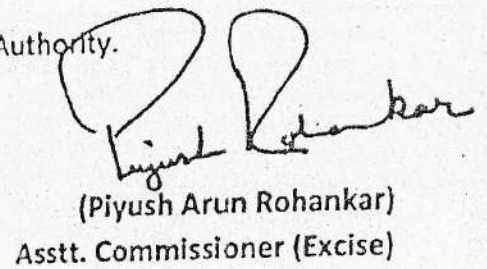 Authority.
Piyush Rohankar
(Piyush Arun Rohankar)
Asstt. Commissioner (Excise)